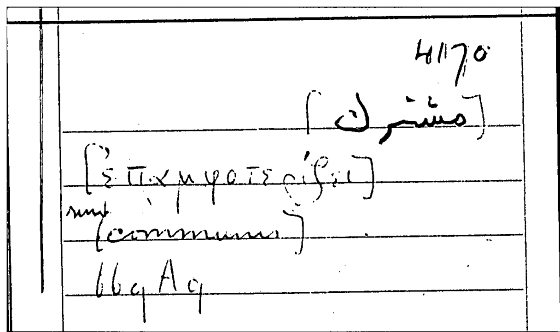 4170
[مشترك]
[ἐπαμφοτερίζει]
sunt
[communis]
66a A9